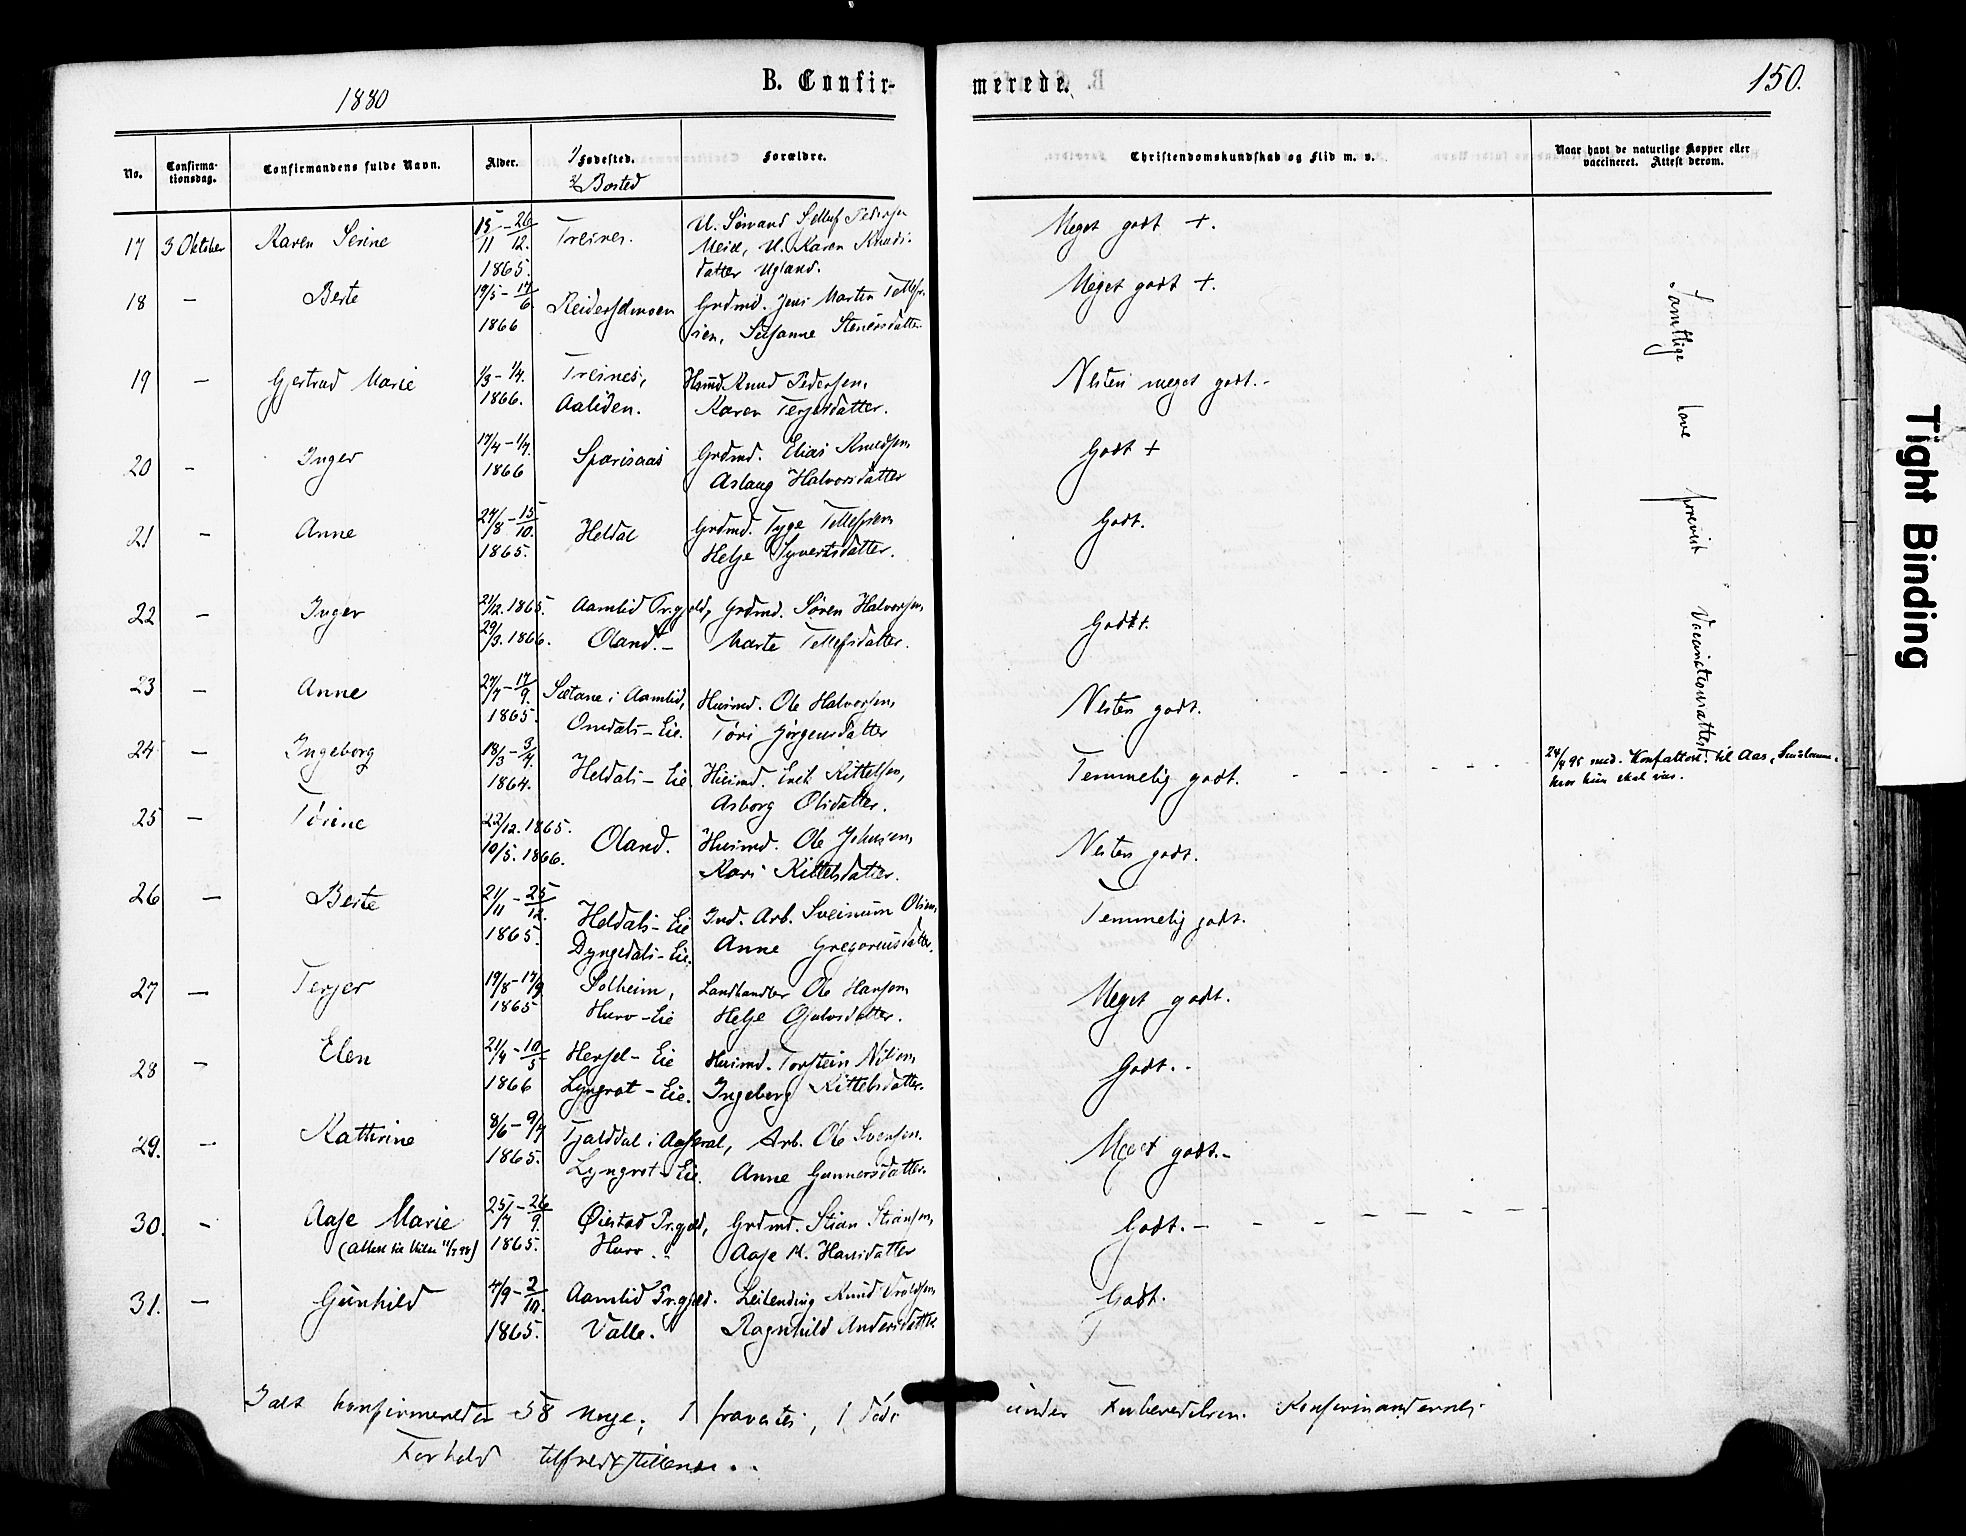 1880
B. Confir-
merede.
150.
No. Confirma-tionsdag. Confirmandens fulde Navn. Alder. 1/ Fødested. 2/ Bosted Forældre. Christendomskundskab og Flid m. v. Naar havt de naturlige Kopper eller vaccineret. Attest derom.
17 3 Oktober Karen Serine 15/11 - 26/12. 1865. Treines. U. Sørvand Tellef Pedersen
Meget godt +.
Datter Ugland.
18 - Berte 19/5 - 17/6 1866 Grdmd. Jens Marten Tellef-
sen, Susanne Stenersdatter
Meget godt +.
19 - Gjertrud Marie 1/3 - 1/4. 1866. Treines, Husmd. Knud Pedersen,
Aaliden. Karen Terjesdatter.
Nesten meget godt. -
20 - Inger 17/4 - 1/7. 1866 Sparsaas Grdmd. Elias Knudsen,
Aslaug Halvorsdatter
Godt +
21 - Anne 24/8 - 15/10. 1865. Heldal Grdmd. Tyge Tellefsen,
Helje Syvertsdatter.
Godt.
22 - Inger 21/12. 1865. Aamlid Prgjeld, Grdmd. Søren Halvorsen,
29/3. 1866. Oland. - Marte Tellefsdatter.
Godt.
23 - Anne 27/7 - 17/9. 1865. Sætane i Aamlid, Husmd. Ole Halvorsen,
Omdals-Eie. Tøri Jørgensdatter
Nesten godt.
24 - Ingeborg 18/3 - 3/4. 1864. Heldals-Eie Husmd. Erik Kittelsen,
Asborg Olsdatter.
Temmelig godt. - - - - - -
24/4 95 med. Konfattest. til Aas,
hvor hun skal vies.
25 - Tørine 22/12. 1865. Oland. Husmd. Ole Johnsen,
10/5. 1866. Kari Kittelsdatter.
Nesten godt.
26 - Berte 21/11 - 25/12. 1865. Heldals-Eie Ind. Arb. Sveinum Olsen,
Dyngedals-Eie. Anne Gregoriusdatter.
Temmelig godt.
27 - Terjer 19/8 - 17/9 1865 Solheim, Landhandler Ole Hansen,
Hurv-Eie Helje Gjulvsdatter.
Meget godt.
28 - Elen 21/4 - 10/5 1866 Herefel-Eie Husmd. Torstein Nilsen,
Lyngrot-Eie. Ingeborg Kittelsdatter.
Godt. -
29. - Kathrine 8/6 - 9/7 1865. Tjalddal i Aaseral, Arb. Ole Svensen.
Lyngrot-Eie. Anne Gunnersdatter.
Meget godt. -
30. - Aase Marie 25/7 - 26/9. 1865. Øiestad Prgjeld, Grdmd. Stian Stiansen,
Hurv. Aase M. Hansdatter
Godt. - - - - - - -
31. - Gunhild 4/9 - 2/10. 1865. Aamlid Prgjeld. Leilending Knud
Valle. Ragnhild Andersdatter
Godt.
Samtlige have foreviist Vaccinationsattest
Ialt konfirmerede 58 Unge; 1 fraveistes, 1 døde under Forberedelsen. Konfirmandernes
Forhold tilfredsstillende.
Tight Binding